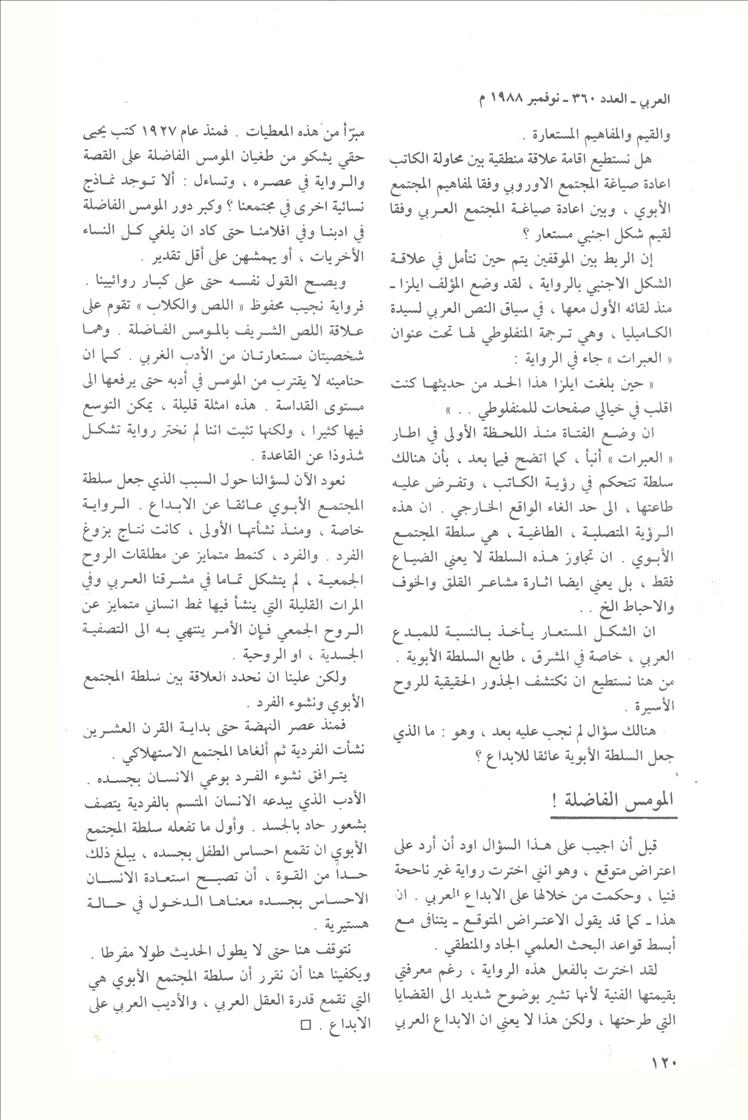 العربي ـ العدد ٣٦٠ ـ نوفمبر ١٩٨٨ م
والقيم والمفاهيم المستعارة .
هل نستطيع اقامة علاقة منطقية بين محاولة الكاتب
اعادة صياغة المجتمع الاوروبي وفقا لمفاهيم المجتمع
الأبوي ، وبين اعادة صياغة المجتمع العربي وفقا
لقيم شكل اجنبي مستعار ؟
إن الربط بين الموقفين يتم حين نتأمل في علاقة
الشكل الاجنبي بالرواية ، لقد وضع المؤلف ايلزا ـ
منذ لقائه الأول معها ، في سياق النص العربي لسيدة
الكاميليا ، وهي ترجمة المنفلوطي لها تحت عنوان
« العبرات » جاء في الرواية :
« حين بلغت ايلزا هذا الحد من حديثها كنت
اقلب في خيالي صفحات للمنفلوطي . . »
ان وضع الفتاة منذ اللحظة الأولى في اطار
« العبرات » أنبأ ، كما اتضح فيما بعد ، بأن هنالك
سلطة تتحكم في رؤية الكاتب ، وتفرض عليه
طاعتها ، الى حد الغاء الواقع الخارجي . ان هذه
الرؤية المتصلبة ، الطاغية ، هي سلطة المجتمع
الأبوي . ان تجاوز هذه السلطة لا يعني الضياع
فقط ، بل يعني ايضا اثارة مشاعر القلق والخوف
والاحباط الخ . .
ان الشكل المستعار يأخذ بالنسبة للمبدع
العربي ، خاصة في المشرق ، طابع السلطة الأبوية .
من هنا نستطيع ان نكتشف الجذور الحقيقية للروح
الأسيرة .
هنالك سؤال لم نجب عليه بعد ، وهو : ما الذي
جعل السلطة الأبوية عائقا للابداع ؟
المومس الفاضلة !
قبل أن اجيب على هذا السؤال اود أن أرد على
اعتراض متوقع ، وهو انني اخترت رواية غير ناجحة
فنيا ، وحكمت من خلالها على الابداع العربي . ان
هذا ـ كما قد يقول الاعتراض المتوقع ـ يتنافى مع
أبسط قواعد البحث العلمي الجاد والمنطقي .
لقد اخترت بالفعل هذه الرواية ، رغم معرفتي
بقيمتها الفنية لأنها تشير بوضوح شديد الى القضايا
التي طرحتها ، ولكن هذا لا يعني ان الابداع العربي
مبرّأ من هذه المعطيات . فمنذ عام ١٩٢٧ كتب يحيى
حقي يشكو من طغيان المومس الفاضلة على القصة
والرواية في عصره ، وتساءل : ألا توجد نماذج
نسائية اخرى في مجتمعنا ؟ وكبر دور المومس الفاضلة
في ادبنا وفي افلامنا حتى كاد ان يلغي كل النساء
الأخريات ، أو يهمشهن على أقل تقدير .
ويصح القول نفسه حتى على كبار روائيينا .
فرواية نجيب محفوظ « اللص والكلاب » تقوم على
علاقة اللص الشريف بالمومس الفاضلة . وهما
شخصيتان مستعارتان من الأدب الغربي . كما ان
حنامينه لا يقترب من المومس في أدبه حتى يرفعها الى
مستوى القداسة . هذه امثلة قليلة ، يمكن التوسع
فيها كثيرا ، ولكنها تثبت اننا لم نختر رواية تشكل
شذوذا عن القاعدة .
نعود الآن لسؤالنا حول السبب الذي جعل سلطة
المجتمع الأبوي عائقا عن الابداع . الرواية
خاصة ، ومنذ نشأتها الأولى ، كانت نتاج بزوغ
الفرد . والفرد ، كنمط متمايز عن مطلقات الروح
الجمعية ، لم يتشكل تماما في مشرقنا العربي وفي
المرات القليلة التي ينشأ فيها نمط انساني متمايز عن
الروح الجمعي فإن الأمر ينتهي به الى التصفية
الجسدية ، او الروحية .
ولكن علينا ان نحدد العلاقة بين سلطة المجتمع
الأبوي ونشوء الفرد .
فمنذ عصر النهضة حتى بداية القرن العشرين
نشأت الفردية ثم ألغاها المجتمع الاستهلاكي .
يترافق نشوء الفرد بوعي الانسان بجسده .
الأدب الذي يبدعه الانسان المتسم بالفردية يتصف
بشعور حاد بالجسد . وأول ما تفعله سلطة المجتمع
الأبوي ان تقمع احساس الطفل بجسده ، يبلغ ذلك
حداً من القوة ، أن تصبح استعادة الانسان
الاحساس بجسده معناها الدخول في حالة
هستيرية .
نتوقف هنا حتى لا يطول الحديث طولا مفرطا .
ويكفينا هنا أن نقرر أن سلطة المجتمع الأبوي هي
التي تقمع قدرة العقل العربي ، والأديب العربي على
الابداع . □
١٢٠